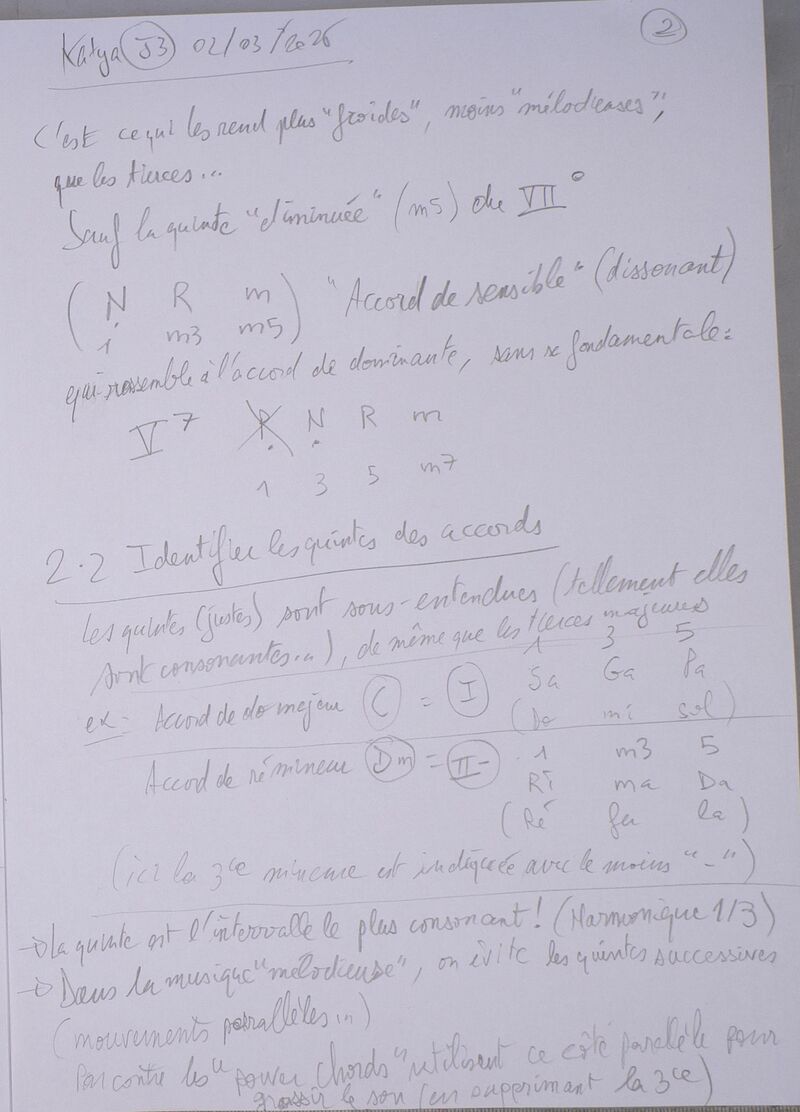 Katya J3 02/03/2026
2
C'est ce qui les rend plus "froides", moins "mélodieuses",
que les tierces...
Sauf la quinte "diminuée" (m5) du VII°
( N R m ) "Accord de sensible" (dissonant)
1 m3 m5
qui ressemble à l'accord de dominante, sans sa fondamentale :
V7 P N R m
1 3 5 m7
2.2 Identifier les quintes des accords
Les quintes (justes) sont sous-entendues (tellement elles
sont consonantes...), de même que les tierces majeures
1 3 5
ex : Accord de do majeur C = I Sa Ga Pa
(Do mi sol)
Accord de ré mineur Dm = II- 1 m3 5
Ri ma Da
(Ré fa la)
(ici la 3ce mineure est indiquée avec le moins "-")
→ La quinte est l'intervalle le plus consonant ! (Harmonique 1/3)
→ Dans la musique "mélodieuse", on évite les quintes successives
(mouvements parallèles...)
Par contre les "power chords" utilisent ce côté parallèle pour
grossir le son (en supprimant la 3ce)